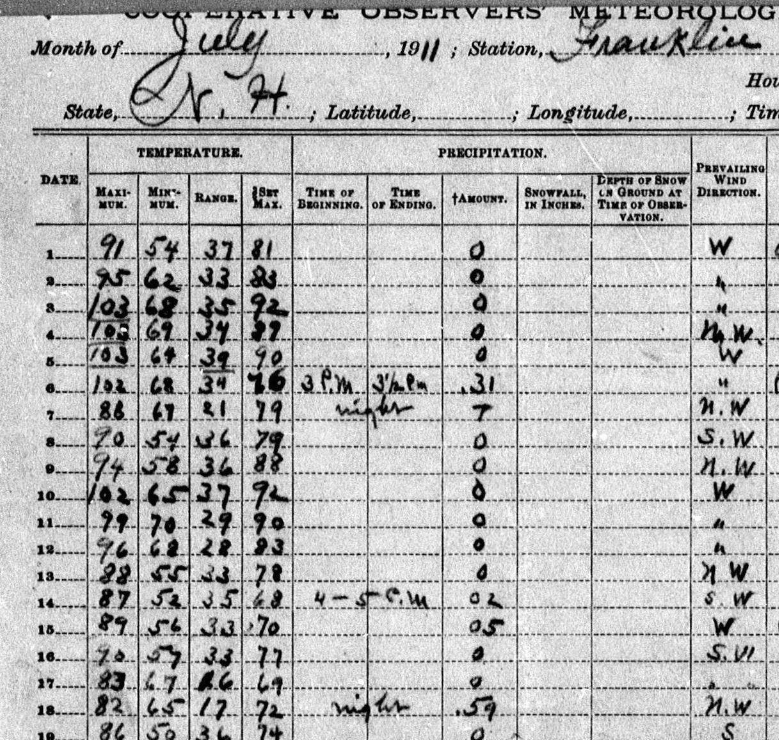 COOPERATIVE OBSERVERS' METEOROLOG
Month of July, 1911; Station, Franklin
Hou
State, N. H.; Latitude, ; Longitude, ; Tim
TEMPERATURE. PRECIPITATION.
DATE. MAXI-MUM. MINI-MUM. RANGE. ‡SET MAX. TIME OF BEGINNING. TIME OF ENDING. †AMOUNT. SNOWFALL, IN INCHES. DEPTH OF SNOW ON GROUND AT TIME OF OBSER-VATION. PREVAILING WIND DIRECTION.
1 91 54 37 81 0 W
2 95 62 33 83 0 "
3 103 68 35 92 0 "
4 103 69 34 89 0 N. W.
5 103 64 39 90 0 W
6 102 68 34 76 3 P.M 3½ Pm .31 "
7 88 67 21 79 night T N. W
8 90 54 36 79 0 S. W
9 94 58 36 88 0 N. W
10 102 65 37 92 0 W
11 99 70 29 90 0 "
12 96 68 28 83 0 "
13 88 55 33 78 0 N W
14 87 52 35 68 4 - 5 P.M 02 S. W
15 89 56 33 70 05 W
16 90 57 33 77 0 S. W
17 83 67 16 69 0 "
18 82 65 17 72 night .59 N. W
19 86 50 36 74 0 S